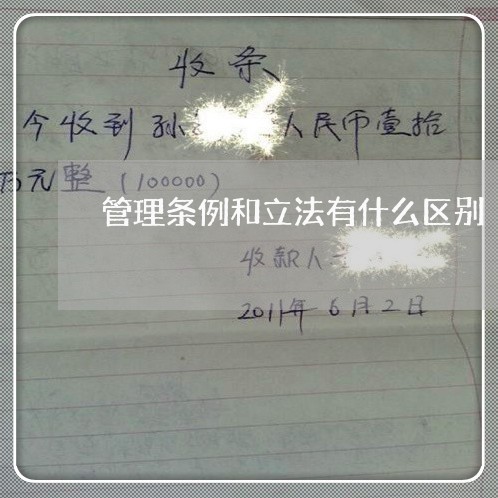 收条
今收到孙 人民币壹拾
万元整(100000)
管理条例和立法有什么区别
收款人
2011年6月2日